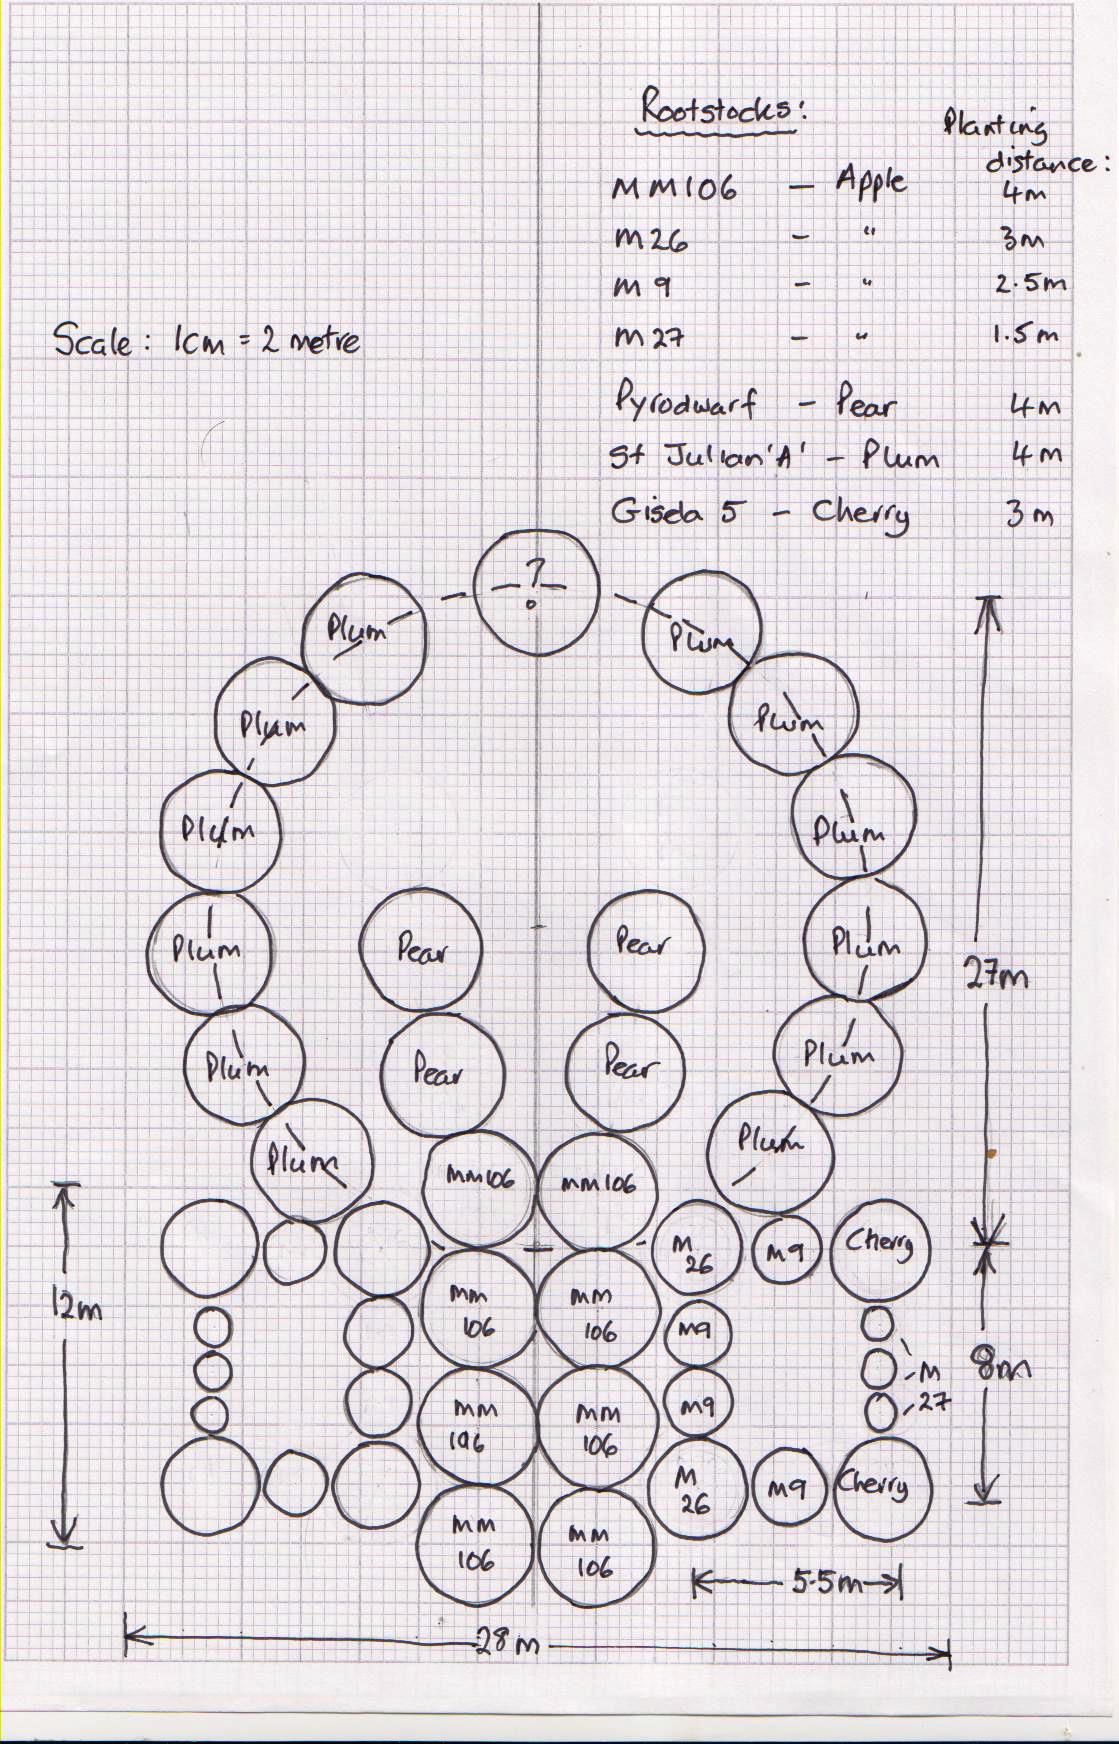 Rootstocks:
Planting
distance:
MM106 — Apple 4m
M26 - " 3m
M9 - " 2.5m
M27 - " 1.5m
Scale: 1cm = 2 metre
Pyrodwarf - Pear 4m
St Julian 'A' - Plum 4m
Gisela 5 - Cherry 3m
?
Plum
Plum
Plum
Plum
Plum
Plum
Plum
Plum
Pear
Pear
Plum
Plum
27m
Pear
Pear
Plum
Plum
Plum
Plum
MM106
MM106
M
26
M9
Cherry
12m
MM
106
MM
106
M9
8m
M
27
MM
106
MM
106
M9
M
26
M9
Cherry
MM
106
MM
106
5.5m
28m